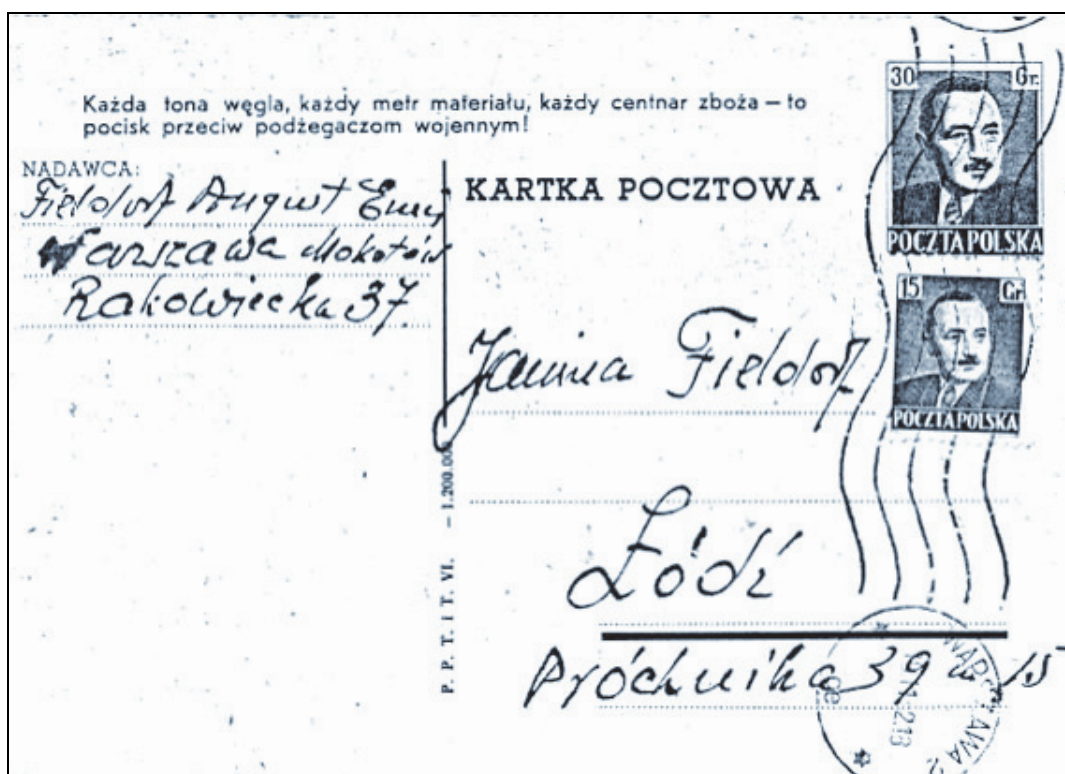 Każda tona węgla, każdy metr materiału, każdy centnar zboża – to
pocisk przeciw podżegaczom wojennym!
NADAWCA:
Fieldorf August Emil
Warszawa Mokotów
Rakowiecka 37.
KARTKA POCZTOWA
30 Gr.
POCZTA POLSKA
15 Gr.
POCZTA POLSKA
Janina Fieldorf
Łódź
Próchnika 39 m 15
P. P. T. i T. VI. – 1.200.00
WARSZAWA 2